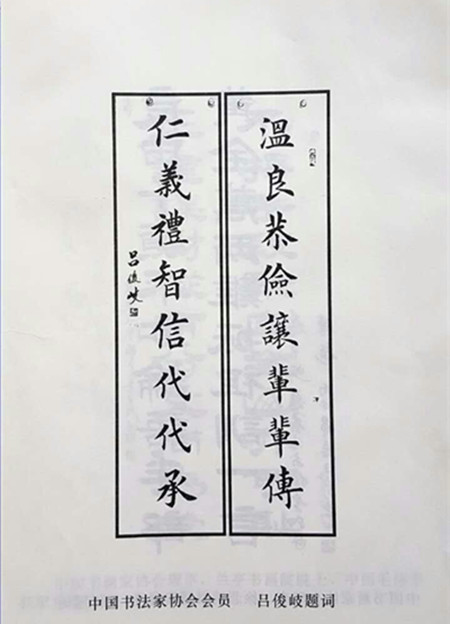 溫良恭儉讓輩輩傳
仁義禮智信代代承
吕俊岐
中国书法家协会会员 吕俊岐题词